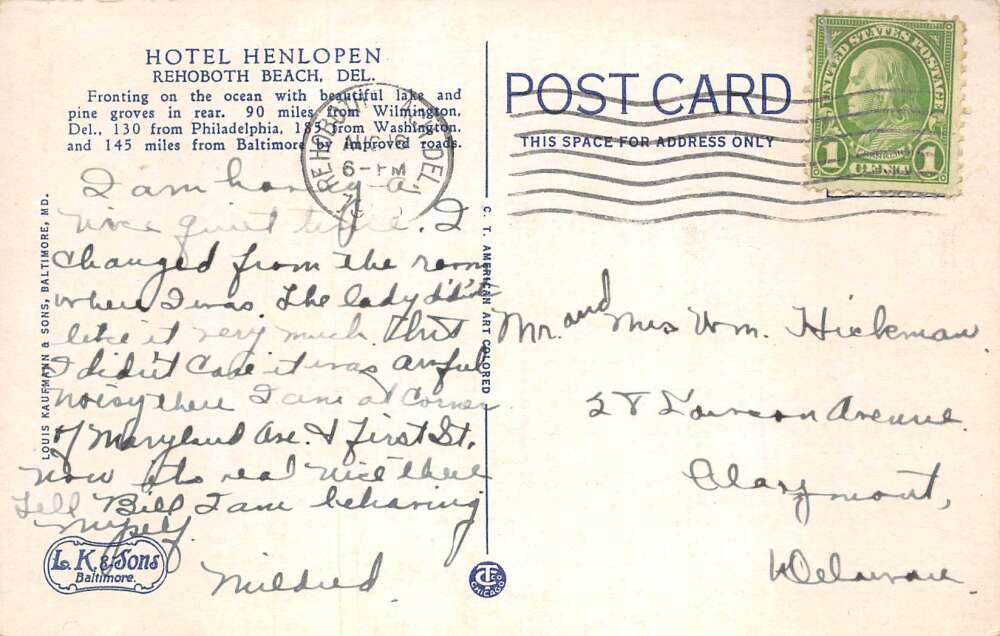 HOTEL HENLOPEN
REHOBOTH BEACH, DEL.
Fronting on the ocean with beautiful lake and
pine groves in rear. 90 miles from Wilmington,
Del., 130 from Philadelphia, 185 from Washington,
and 145 miles from Baltimore by improved roads.
I am having a
nice quiet time. I
changed from the room
where I was. The lady didn't
like it very much. But
I didn't care it was awful
noisy there I am at corner
of Maryland Ave. & First St.
now its real nice there
Tell Bill I am behaving
myself.
Mildred
LOUIS KAUFMANN & SONS, BALTIMORE, MD.
L. K. & Sons
Baltimore.
C. T. AMERICAN ART COLORED
CT
CHICAGO
REHOBOTH DEL.
6-PM
POST CARD
THIS SPACE FOR ADDRESS ONLY
UNITED STATES POSTAGE
1 CENT 1
Mr. and Mrs Wm. Hickman
28 Lawson Avenue.
Claymont,
Delaware